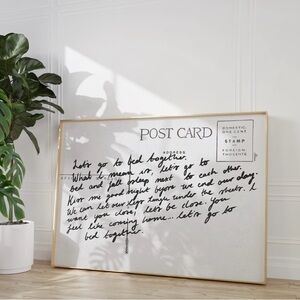 POST CARD
ADDRESS
DOMESTIC
ONE CENT
STAMP
FOREIGN
TWO CENTS
Let's go to bed together.
What I mean is, let's go to
bed and fall asleep next to each other.
Kiss me good night before we end our day.
We can let our legs tangle under the sheets. I
want you close, let's be close. You
feel like coming home... let's go to
bed together.